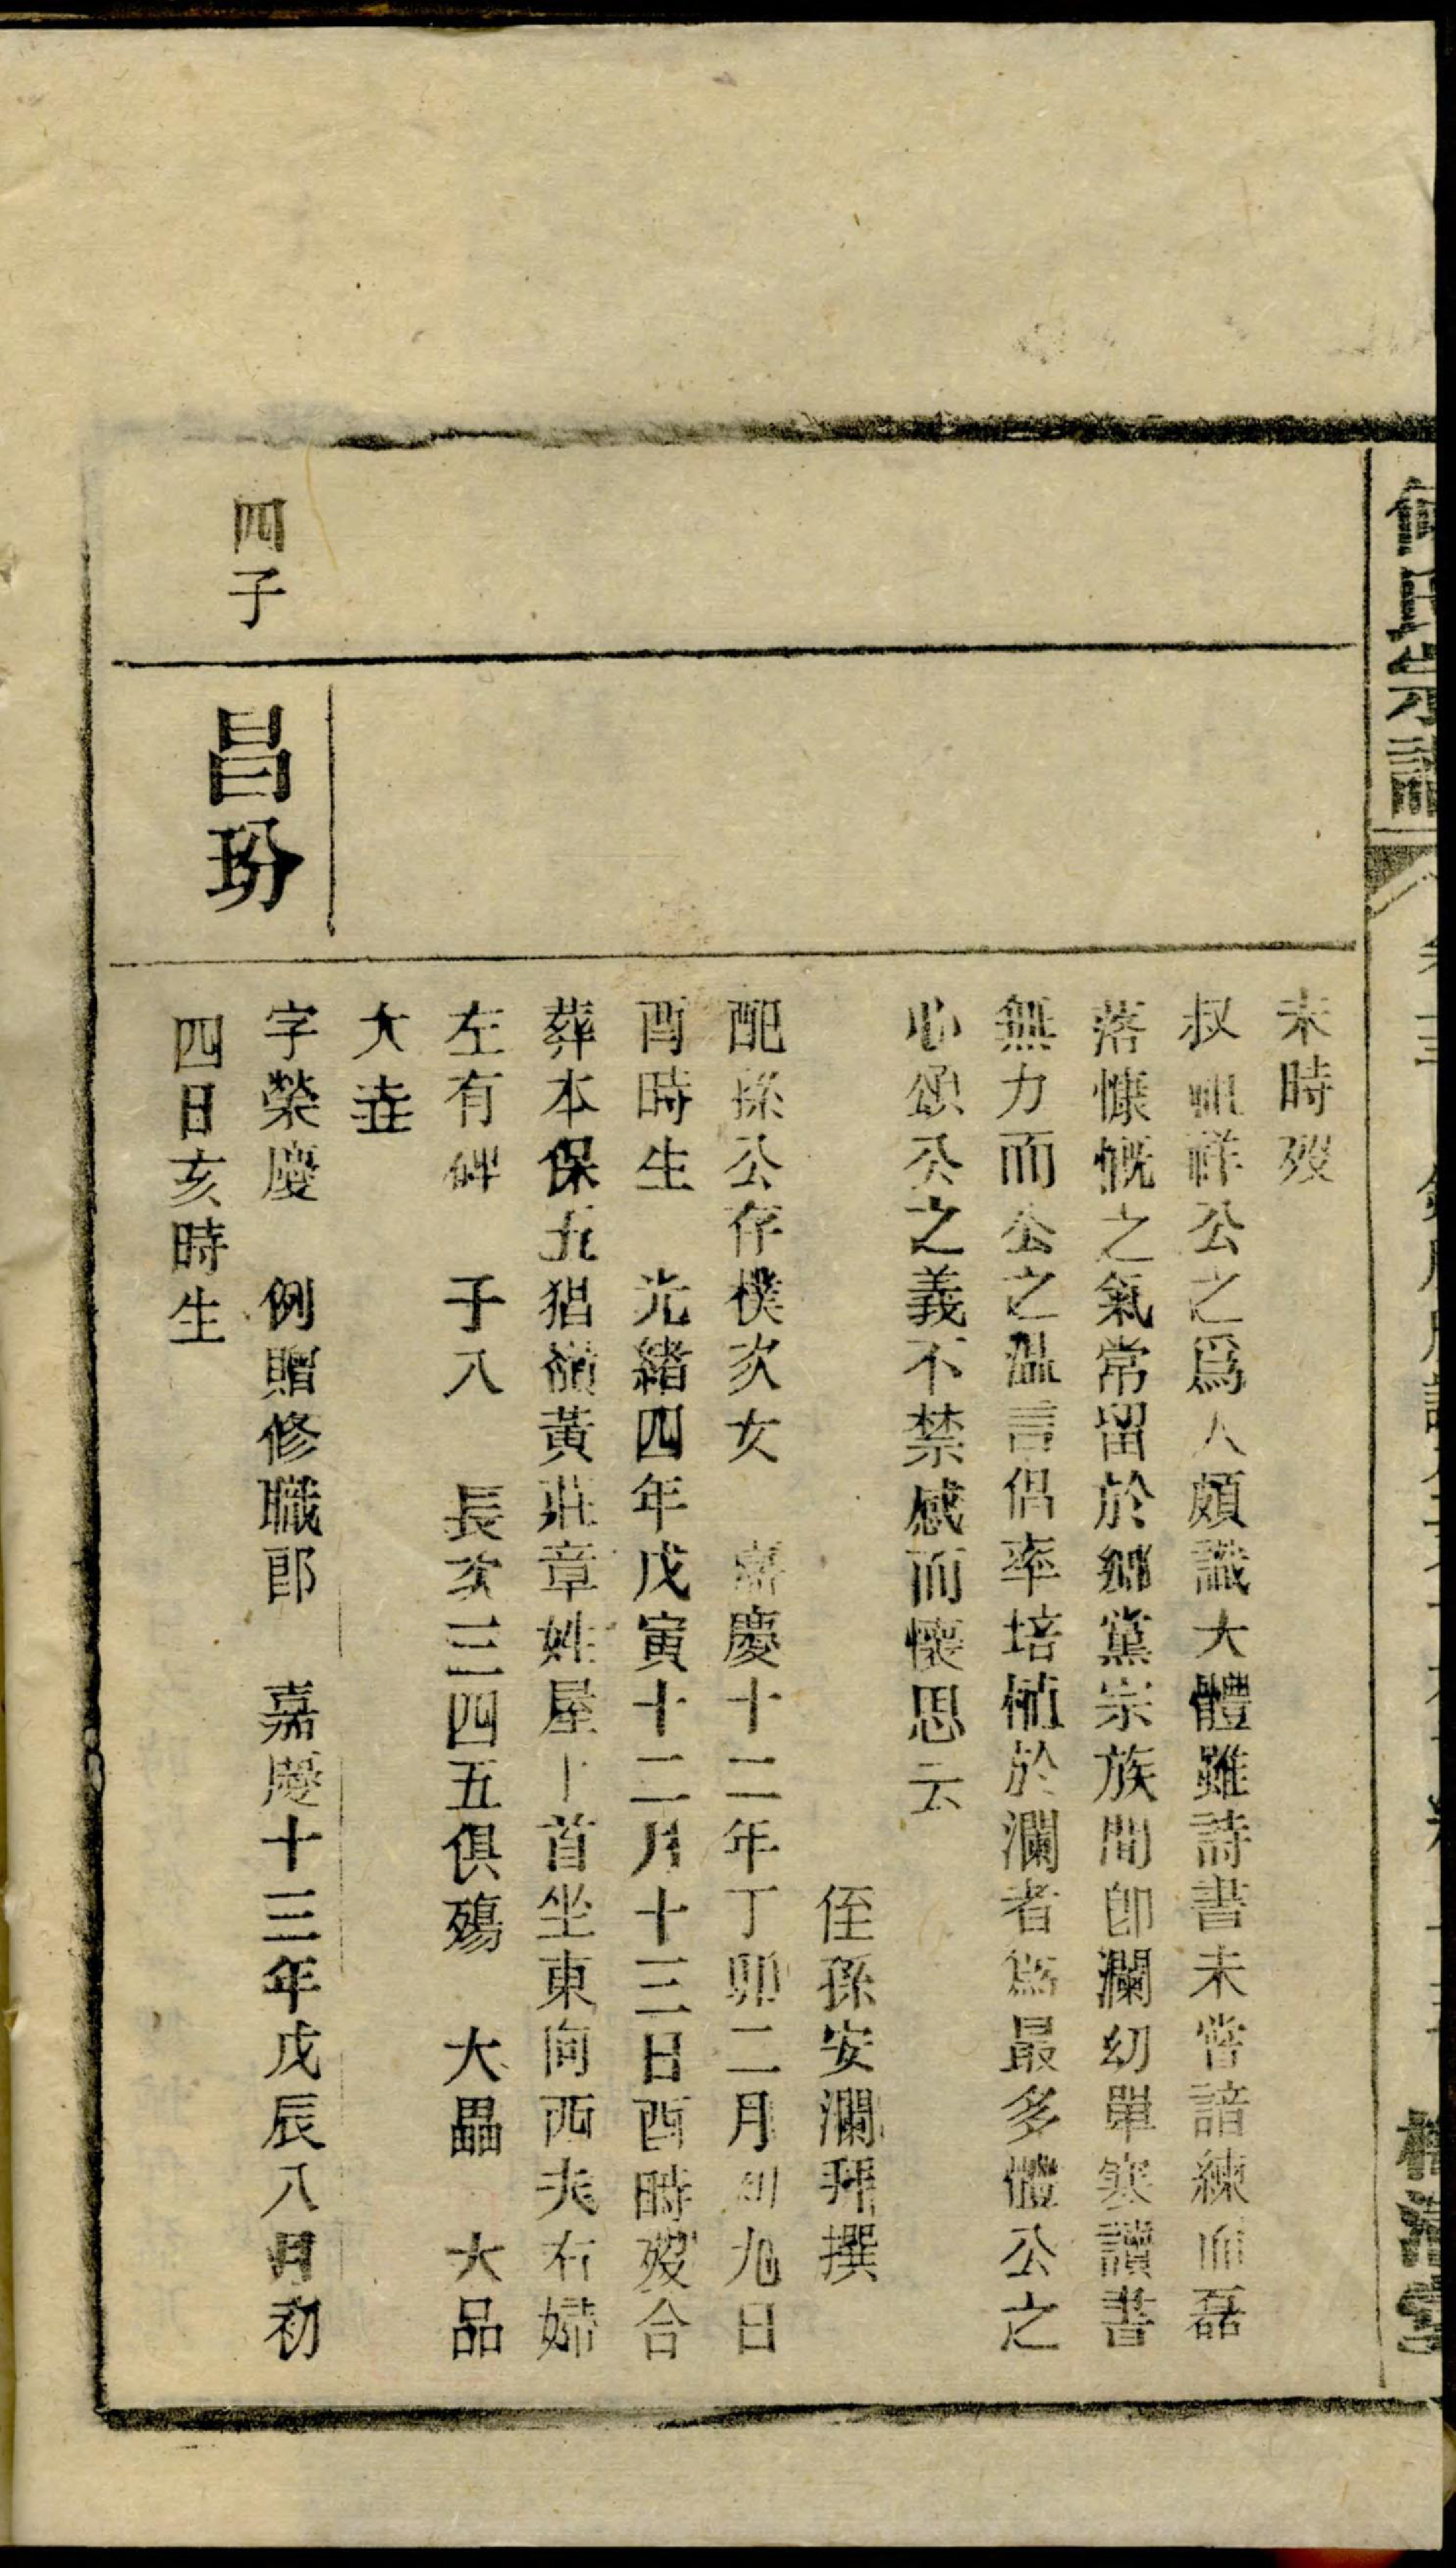 氏宗譜
未時歿
叔祖祥公之爲人頗識大體雖詩書未嘗諳練而磊
落慷慨之氣常留於鄉黨宗族間卽瀾幼單寒讀書
無力而公之溫言侣率培植於瀾者爲最多體公之
心頌公之義不禁感而懷思云
侄孫安瀾拜撰
配孫公存樸次女 嘉慶十二年丁卯二月初九日
酉時生 光緒四年戊寅十二月十三日酉時歿合
葬本保五猖嶺黃莊章姓屋上首坐東向西夫右婦
左有碑 子八 長次三四五俱殤 大畾 大品
大垚
四子
昌玢
字榮慶 例贈修職郎 嘉慶十三年戊辰八月初
四日亥時生